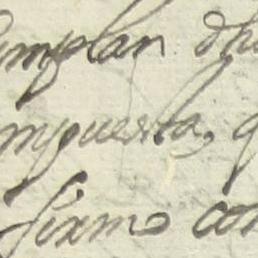 umplan dho
mpuesta, q
firmo con